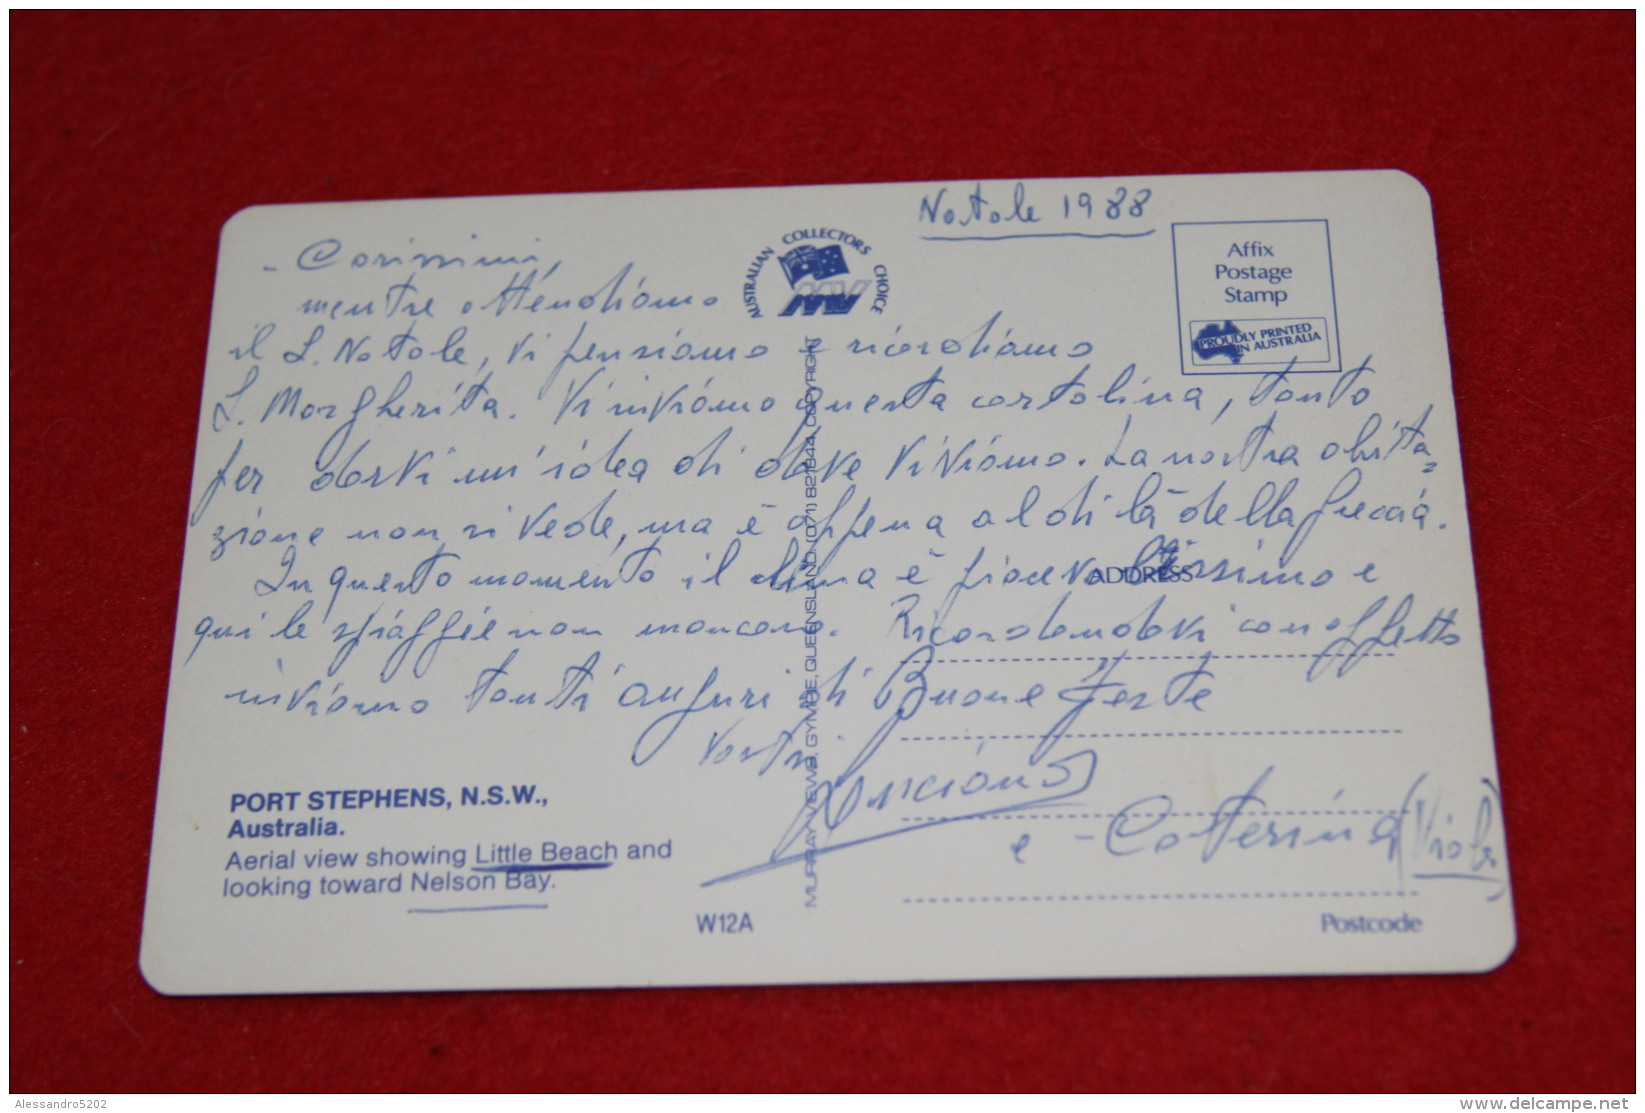 Natale 1988
- Carissimi,
mentre attendiamo
il S. Natale, vi pensiamo e ricordiamo
S. Margherita. Vi inviamo questa cartolina, tanto
per darvi un'idea di dove viviamo. La nostra abita=
zione non si vede, ma è appena al di là della freccia.
In questo momento il clima è piacevolissimo e
qui le spiaggie non mancano. Ricordandovi con affetto
inviamo tanti auguri di Buone Feste
Vostri
e - Caterina (Viola)
AUSTRALIAN COLLECTORS CHOICE
MV
Affix
Postage
Stamp
PROUDLY PRINTED
IN AUSTRALIA
MURRAY VIEWS, GYMPIE, QUEENSLAND. (071) 821844 COPYRIGHT
ADDRESS
PORT STEPHENS, N.S.W.,
Australia.
Aerial view showing Little Beach and
looking toward Nelson Bay.
W12A
Postcode
Alessandro5202
delcampe.net